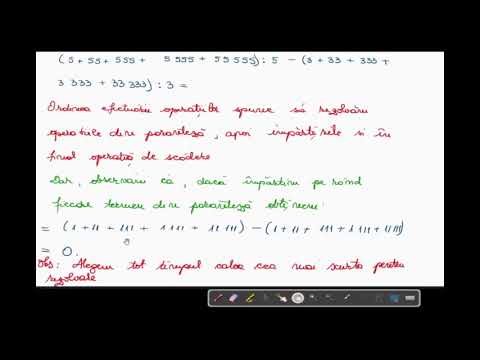 (5+55+555+ 5 555+ 55 555):5 -(3+33+333+
3 333+33 333):3=
Ordinea efectuării operațiilor spune să rezolvăm
operațiile din paranteză, apoi împărțirile și în
final operația de scădere
Dar, observăm că, dacă împărțim pe rând
fiecare termen din paranteză obținem:
= (1+11+111+ 1 111+ 11 111)-(1+11+ 111+1 111+11 111)
= 0.
Obs: Alegem tot timpul calea cea mai scurtă pentru
rezolvare